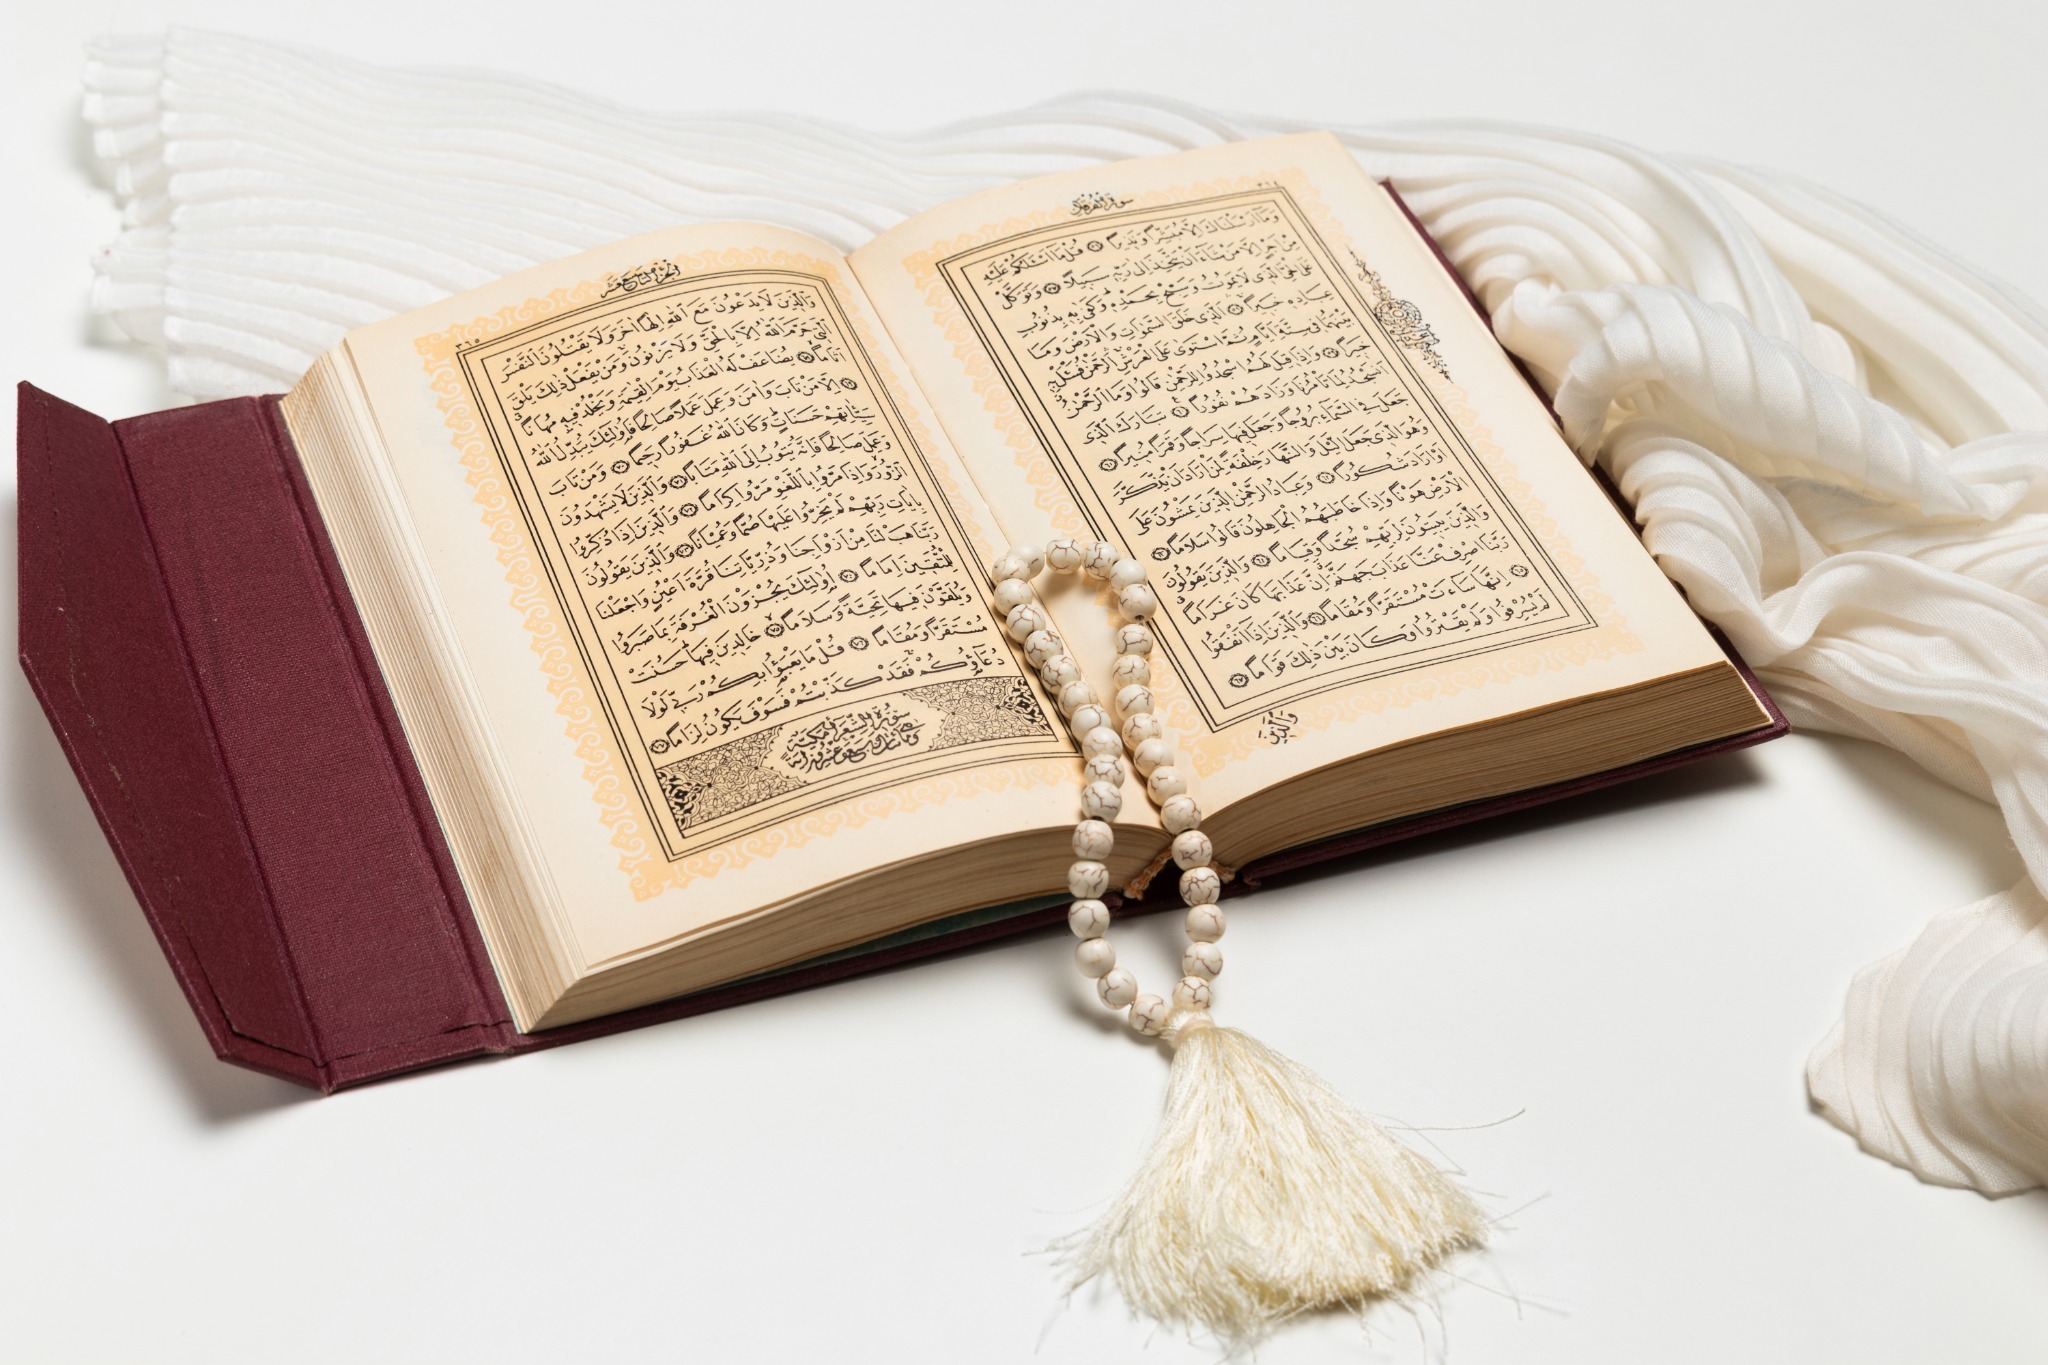 سورة الفرقان
٣٦٤
وَمَا اَرْسَلْنَاكَ اِلَّا مُبَشِّراً وَنَذِيراً ﴿٥٦﴾ قُلْ مَا اَسْئَلُكُمْ عَلَيْهِ
مِنْ اَجْرٍ اِلَّا مَنْ شَاءَ اَنْ يَتَّخِذَ اِلٰى رَبِّهِ سَبِيلاً ﴿٥٧﴾ وَتَوَكَّلْ
عَلَى الْحَيِّ الَّذِى لَا يَمُوتُ وَسَبِّحْ بِحَمْدِهِ وَكَفٰى بِهِ بِذُنُوبِ
عِبَادِهِ خَبِيراً ﴿٥٨﴾ اَلَّذِى خَلَقَ السَّمٰوَاتِ وَالْاَرْضَ وَمَا
بَيْنَهُمَا فِى سِتَّةِ اَيَّامٍ ثُمَّ اسْتَوٰى عَلَى الْعَرْشِ اَلرَّحْمٰنُ فَسْئَلْ بِهِ
خَبِيراً ﴿٥٩﴾ وَاِذَا قِيلَ لَهُمُ اسْجُدُوا لِلرَّحْمٰنِ قَالُوا وَمَا الرَّحْمٰنُ
اَنَسْجُدُ لِمَا تَأْمُرُنَا وَزَادَهُمْ نُفُوراً ﴿٦٠﴾ تَبَارَكَ الَّذِى
جَعَلَ فِى السَّمَاءِ بُرُوجاً وَجَعَلَ فِيهَا سِرَاجاً وَقَمَراً مُنِيراً ﴿٦١﴾
وَهُوَ الَّذِى جَعَلَ الَّيْلَ وَالنَّهَارَ خِلْفَةً لِمَنْ اَرَادَ اَنْ يَذَّكَّرَ
اَوْ اَرَادَ شُكُوراً ﴿٦٢﴾ وَعِبَادُ الرَّحْمٰنِ الَّذِينَ يَمْشُونَ عَلَى
الْاَرْضِ هَوْناً وَاِذَا خَاطَبَهُمُ الْجَاهِلُونَ قَالُوا سَلَاماً ﴿٦٣﴾
وَالَّذِينَ يَبِيتُونَ لِرَبِّهِمْ سُجَّداً وَقِيَاماً ﴿٦٤﴾ وَالَّذِينَ يَقُولُونَ
رَبَّنَا اصْرِفْ عَنَّا عَذَابَ جَهَنَّمَ اِنَّ عَذَابَهَا كَانَ غَرَاماً
﴿٦٥﴾ اِنَّهَا سَاءَتْ مُسْتَقَرّاً وَمُقَاماً ﴿٦٦﴾ وَالَّذِينَ اِذَا اَنْفَقُوا
لَمْ يُسْرِفُوا وَلَمْ يَقْتُرُوا وَكَانَ بَيْنَ ذٰلِكَ قَوَاماً ﴿٦٧﴾
وَالَّذِينَ
الجزء التاسع عشر
٣٦٥
وَالَّذِينَ لَا يَدْعُونَ مَعَ اللّٰهِ اِلٰهاً اٰخَرَ وَلَا يَقْتُلُونَ النَّفْسَ
الَّتِى حَرَّمَ اللّٰهُ اِلَّا بِالْحَقِّ وَلَا يَزْنُونَ وَمَنْ يَفْعَلْ ذٰلِكَ يَلْقَ
اَثَاماً ﴿٦٨﴾ يُضَاعَفْ لَهُ الْعَذَابُ يَوْمَ الْقِيٰمَةِ وَيَخْلُدْ فِيهِ مُهَاناً
﴿٦٩﴾ اِلَّا مَنْ تَابَ وَاٰمَنَ وَعَمِلَ عَمَلاً صَالِحاً فَاُولٰئِكَ يُبَدِّلُ اللّٰهُ
سَيِّئَاتِهِمْ حَسَنَاتٍ وَكَانَ اللّٰهُ غَفُوراً رَحِيماً ﴿٧٠﴾ وَمَنْ تَابَ
وَعَمِلَ صَالِحاً فَاِنَّهُ يَتُوبُ اِلَى اللّٰهِ مَتَاباً ﴿٧١﴾ وَالَّذِينَ لَا يَشْهَدُونَ
الزُّورَ وَاِذَا مَرُّوا بِاللَّغْوِ مَرُّوا كِرَاماً ﴿٧٢﴾ وَالَّذِينَ اِذَا ذُكِّرُوا
بِاٰيَاتِ رَبِّهِمْ لَمْ يَخِرُّوا عَلَيْهَا صُمّاً وَعُمْيَاناً ﴿٧٣﴾ وَالَّذِينَ يَقُولُونَ
رَبَّنَا هَبْ لَنَا مِنْ اَزْوَاجِنَا وَذُرِّيَّاتِنَا قُرَّةَ اَعْيُنٍ وَاجْعَلْنَا
لِلْمُتَّقِينَ اِمَاماً ﴿٧٤﴾ اُولٰئِكَ يُجْزَوْنَ الْغُرْفَةَ بِمَا صَبَرُوا
وَيُلَقَّوْنَ فِيهَا تَحِيَّةً وَسَلَاماً ﴿٧٥﴾ خَالِدِينَ فِيهَا حَسُنَتْ
مُسْتَقَرّاً وَمُقَاماً ﴿٧٦﴾ قُلْ مَا يَعْبَؤُا بِكُمْ رَبِّى لَوْلَا
دُعَاؤُكُمْ فَقَدْ كَذَّبْتُمْ فَسَوْفَ يَكُونُ لِزَاماً ﴿٧٧﴾
سورة الشعراء مكية
وهى مائتان وسبع وعشرون اية